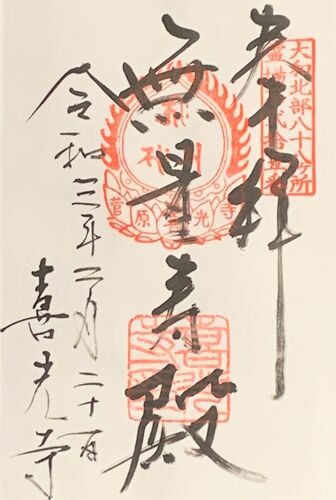 奉拝
大和北部八十八ヶ所
霊場第
無量寿殿
菅原喜光寺
令和三年二月二十一日
喜光寺